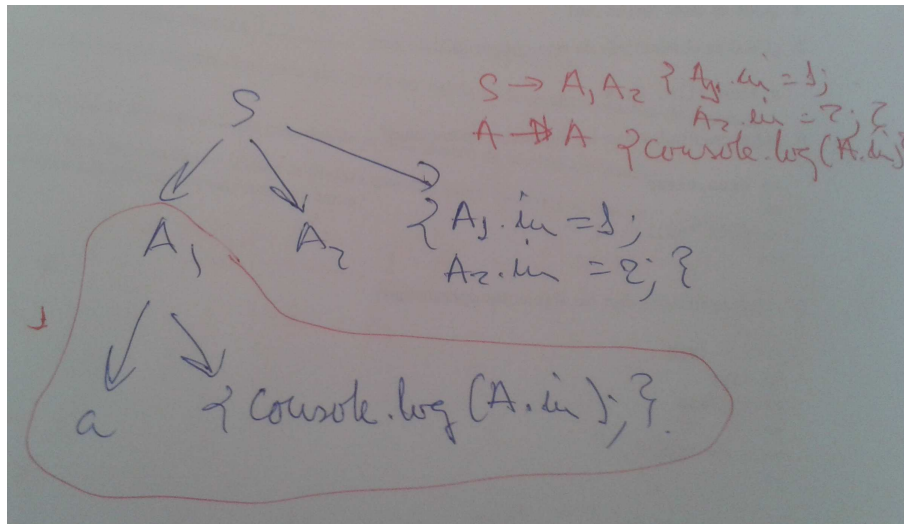 S → A₁ A₂ { A₁.in = 1;
A₂.in = 2; }
A → A {console.log(A.in)
S
A₁ A₂ { A₁.in = 1;
A₂.in = 2; }
1
a {console.log(A.in);}.